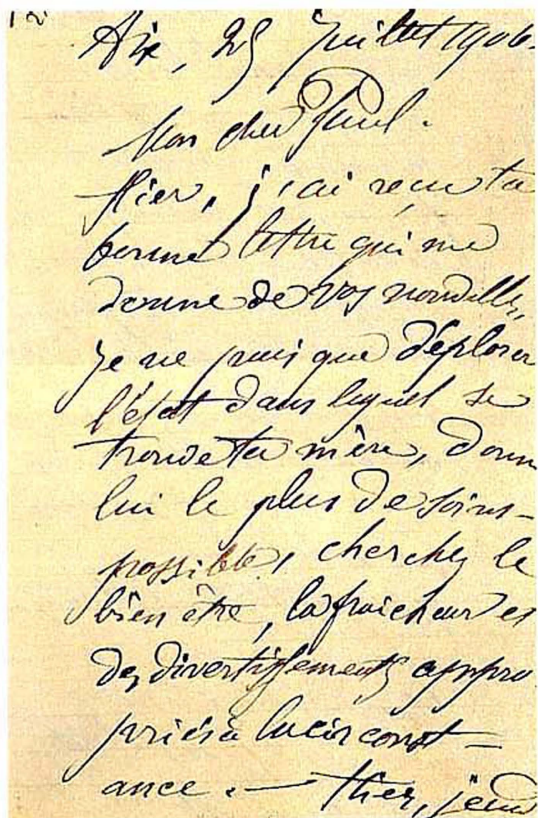 Aix, 25 juillet 1906.
Mon cher Paul.
Hier, j'ai reçu ta
bonne lettre qui me
donne de vos nouvelles,
je ne puis que déplorer
l'état dans lequel se
trouve ta mère, donne
lui le plus de soins
possible, cherchez le
bien être, la fraîcheur et
des divertissements appro
priés à la circonst-
ance. — Hier, jeudi